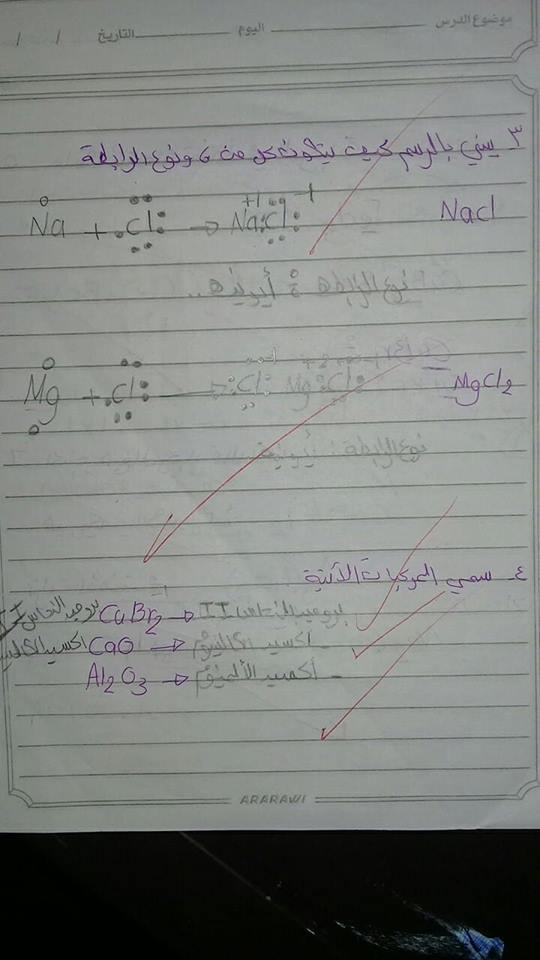 موضوع الدرس اليوم التاريخ / /
٣ بيني بالرسم كيف يتكون كل من و نوع الرابطة
NaCl
Na + Cl → Na Cl
نوع الرابطة أيونية..
MgCl2
Mg + Cl → Cl Mg Cl
نوع الرابطة: أيونية
٤- سمي المركبات الآتية
CuBr2 → بروميد النحاس II
CaO → أكسيد الكالسيوم
Al2O3 → أكسيد الألمنيوم
ARARAWI